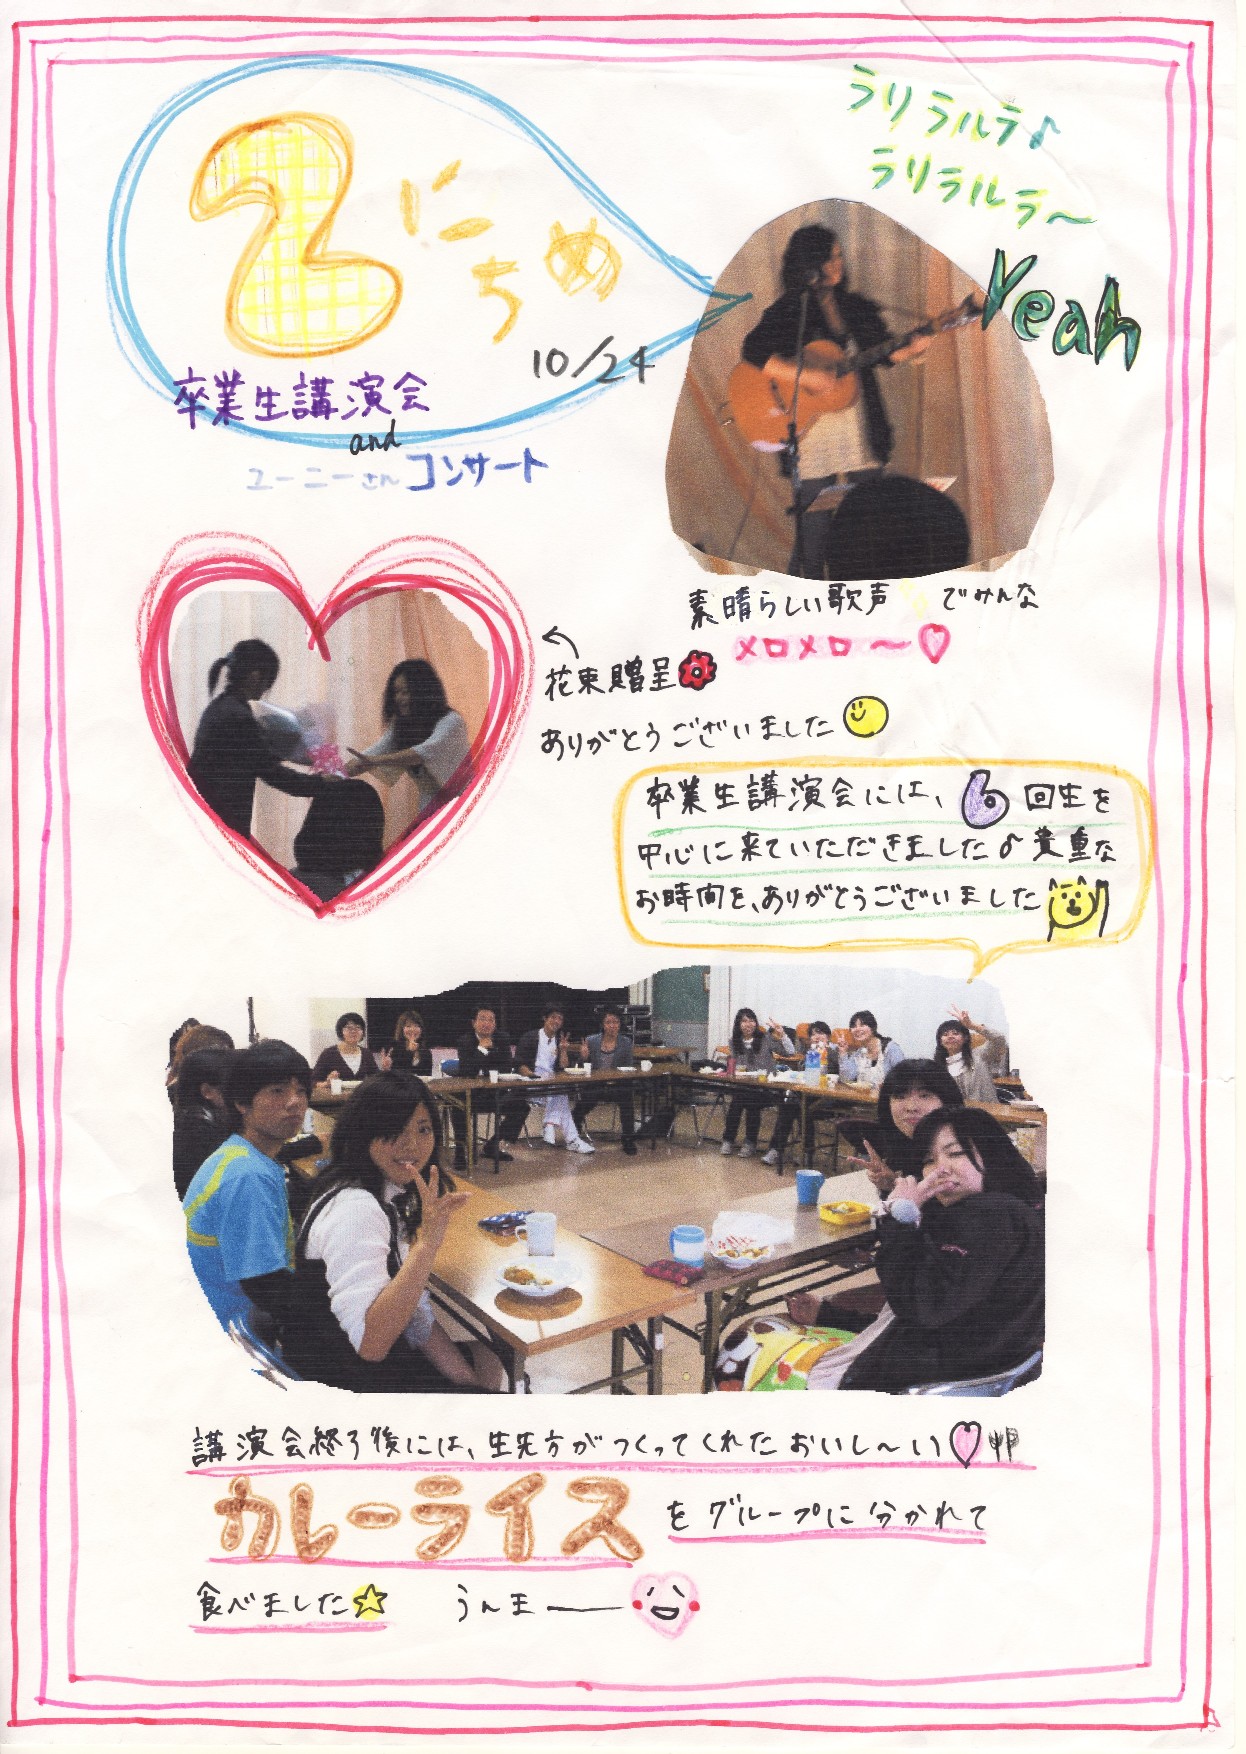 2にちめ
10/24
卒業生講演会
and
ユーニーさんコンサート
ラリラルラ♪
ラリラルラ〜
Yeah
素晴らしい歌声でみんな
メロメロ〜♡
花束贈呈
ありがとうございました
卒業生講演会には、6回生を
中心に来ていただきました♪貴重な
お時間を、ありがとうございました
講演会終了後には、先生方がつくってくれたおいし〜い♡
カレーライスをグループに分かれて
食べました☆ うんまー